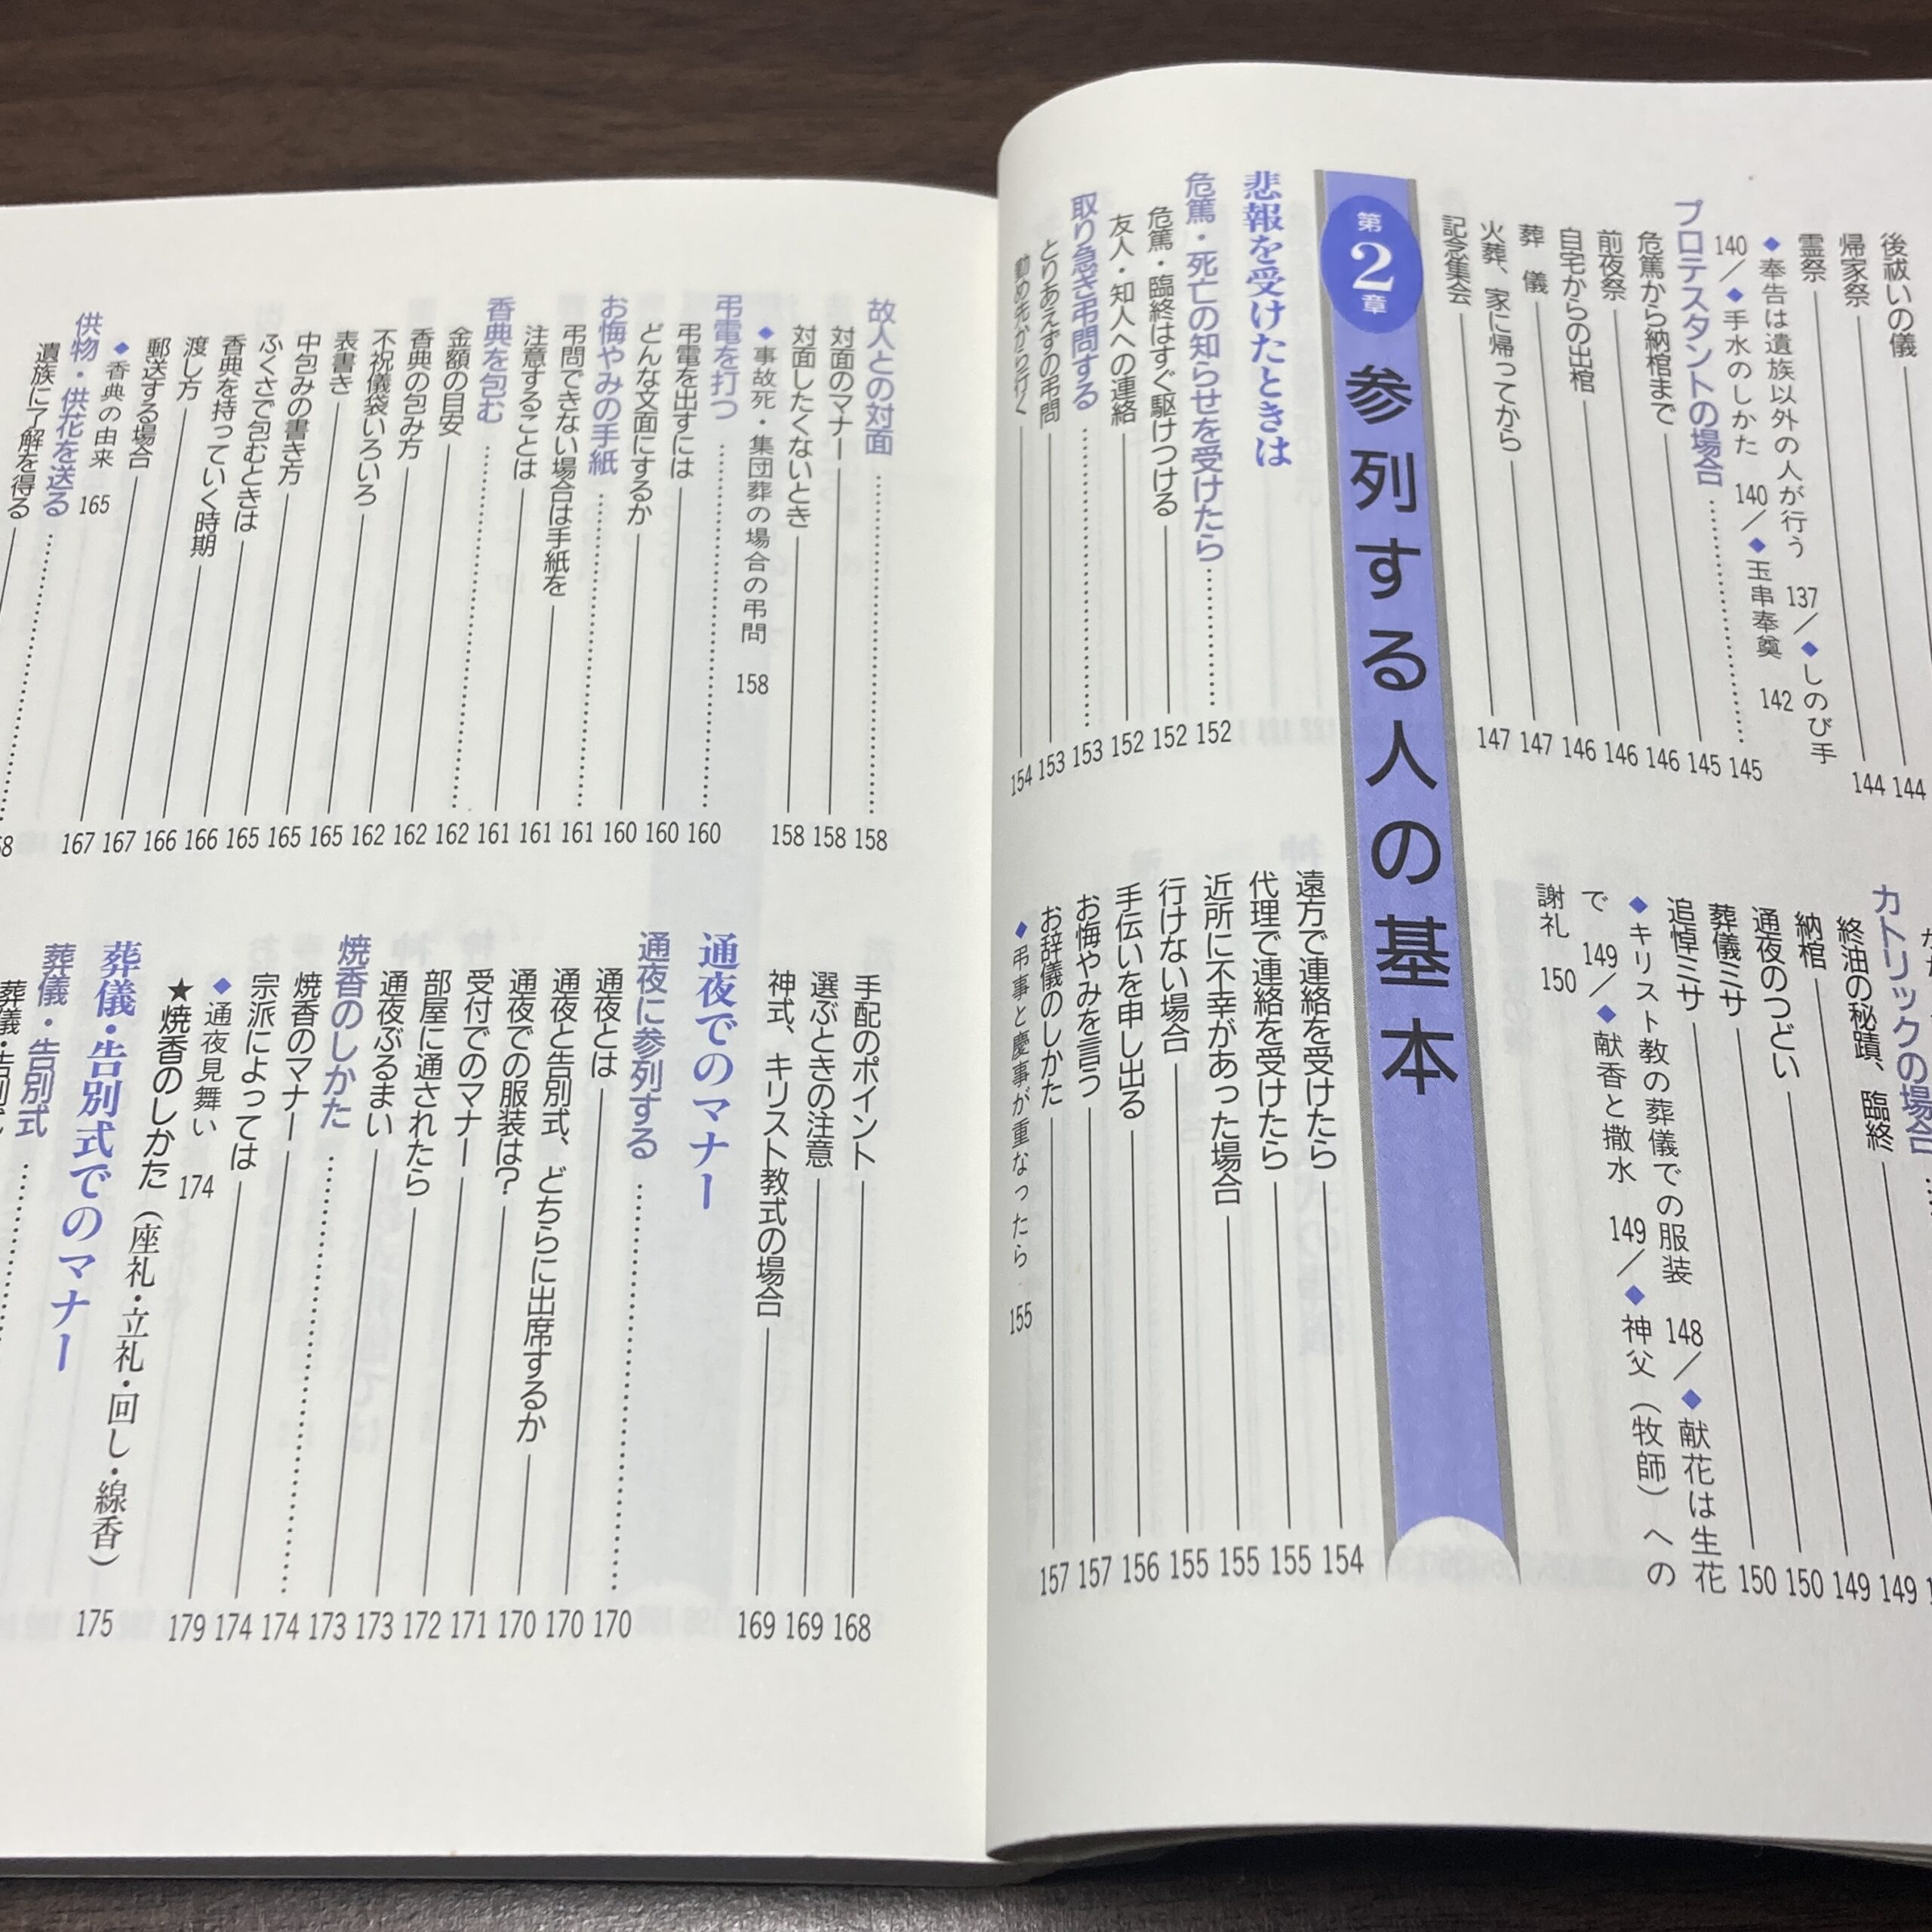 後祓いの儀 144
帰家祭 144
霊祭
◆奉告は遺族以外の人が行う 137／◆しのび手
140／◆手水のしかた 140／◆玉串奉奠 142
プロテスタントの場合 145
危篤から納棺まで 145
前夜祭 146
自宅からの出棺 146
葬儀 146
火葬、家に帰ってから 147
記念集会 147
カトリックの場合
終油の秘蹟、臨終 149
納棺 149
通夜のつどい 150
葬儀ミサ 150
追悼ミサ
◆キリスト教の葬儀での服装 148／◆献花は生花
で 149／◆献香と撒水 149／◆神父（牧師）への
謝礼 150
第2章 参列する人の基本
悲報を受けたときは
危篤・死亡の知らせを受けたら 152
危篤・臨終はすぐ駆けつける 152
友人・知人への連絡 152
取り急ぎ弔問する 153
とりあえずの弔問 153
勤め先から行く 154
遠方で連絡を受けたら 154
代理で連絡を受けたら 155
近所に不幸があった場合 155
行けない場合 155
手伝いを申し出る 156
お悔やみを言う 157
お辞儀のしかた 157
◆弔事と慶事が重なったら 155
故人との対面 158
対面のマナー 158
対面したくないとき 158
◆事故死・集団葬の場合の弔問 158
弔電を打つ 160
弔電を出すには 160
どんな文面にするか 160
お悔やみの手紙 161
弔問できない場合は手紙を 161
注意することは 161
香典を包む 162
金額の目安 162
香典の包み方 162
不祝儀袋いろいろ 165
表書き 165
中包みの書き方 165
ふくさで包むときは 166
香典を持っていく時期 166
渡し方 167
郵送する場合 167
◆香典の由来 165
供物・供花を送る
遺族に了解を得る
手配のポイント 168
選ぶときの注意 169
神式、キリスト教式の場合 169
通夜でのマナー
通夜に参列する 170
通夜とは 170
通夜と告別式、どちらに出席するか 170
通夜での服装は？ 171
受付でのマナー 172
部屋に通されたら 173
通夜ぶるまい 173
焼香のしかた 174
焼香のマナー 174
宗派によっては 179
◆通夜見舞い 174
★焼香のしかた（座礼・立礼・回し・線香） 175
葬儀・告別式でのマナー
葬儀・告別式